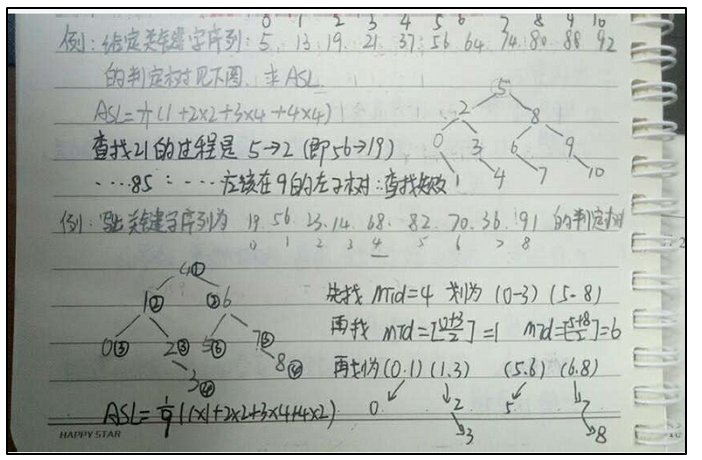 0 1 2 3 4 5 6 7 8 9 10
例：给定关键字序列：5. 13. 19. 21. 37. 56 64. 74. 80 88 92
的判定树见下图，求ASL
ASL=(1+2x2+3x4+4x4)
查找21的过程是 5→2 (即56→19)
....85：....应该在9的左子树∴查找失败
5
2 8
0 3 6 9
1 4 7 10
例：关键字序列为 19 56 23. 14. 68. 82. 70. 36. 91 的判定树
0 1 2 3 4 5 6 7 8
4①
1② ②6
0③ 2③ 5③ 7③
3④ 8④
先找 mid=4 划为 (0-3) (5-8)
再找 mid=[0+3/2]=1 mid=[5+8/2]=6
再划为(0.1) (1.3) (5.6) (6.8)
0 2 5 7
3 8
ASL=1/9(1x1+2x2+3x4+4x2)
HAPPY STAR